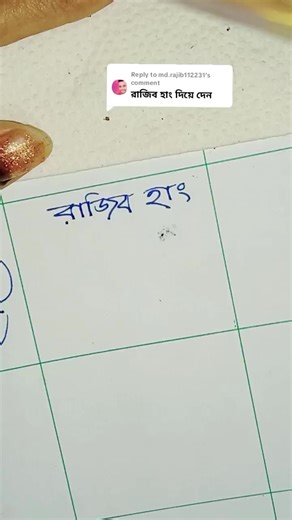 Reply to md.rajib112231's
comment
রাজিব হাং দিয়ে দেন
রাজিব হাং